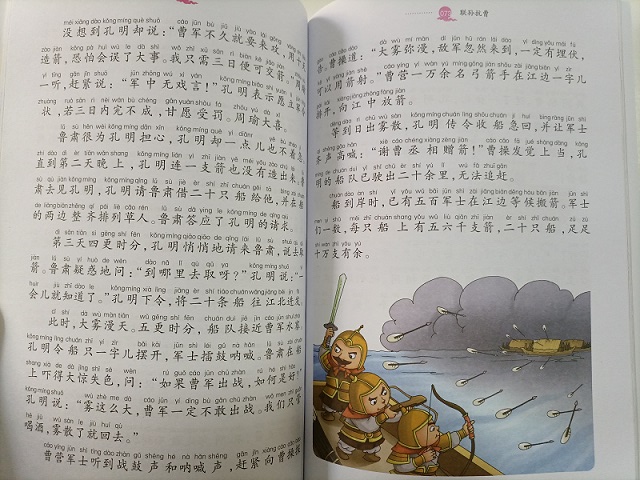 没想到孔明却说：“曹军不久就要来攻，用十天
造箭，恐怕会误了大事。我只需三日便可交箭。”周瑜
一听，赶紧说：“军中无戏言！”孔明表示愿立军令
状，若三日内完不成，甘愿受罚。周瑜大喜。
鲁肃很为孔明担心，孔明却一点儿也不着急。
直到第二天晚上，孔明连一支箭也没有造出来。鲁
肃去见孔明，孔明请鲁肃借二十只船给他，并在船
的两边整齐排列草人。鲁肃答应了孔明的请求。
第三天四更时分，孔明悄悄地请来鲁肃，说去取
箭。鲁肃疑惑地问：“到哪里去取呀？”孔明说：“一
会儿就知道了。”孔明下令，将二十条船往江北进发。
此时，大雾漫天。五更时分，船队接近曹军水寨。
孔明令船只一字儿摆开，军士擂鼓呐喊。鲁肃在船
上吓得大惊失色，问：“如果曹军出战，如何是好？”
孔明说：“雾这么大，曹军一定不敢出战。我们只管
喝酒，雾散了就回去。”
曹营军士听到战鼓声和呐喊声，赶紧向曹操报
077 联孙抗曹
告。曹操道：“大雾弥漫，敌军忽然来到，一定有埋伏，
可以用箭射。”曹营一万余名弓箭手在江边一字儿
排开，向江中放箭。
等到日出雾散，孔明传令收船急回，并让军士
齐声高喊：“谢曹丞相赠箭！”曹操发觉上当，孔
明的船队已驶出二十余里，无法追赶。
船到岸时，已有五百军士在江边等候搬箭。军士
们一数，每只船上有五六千支箭，二十只船，足足
十万支有余。